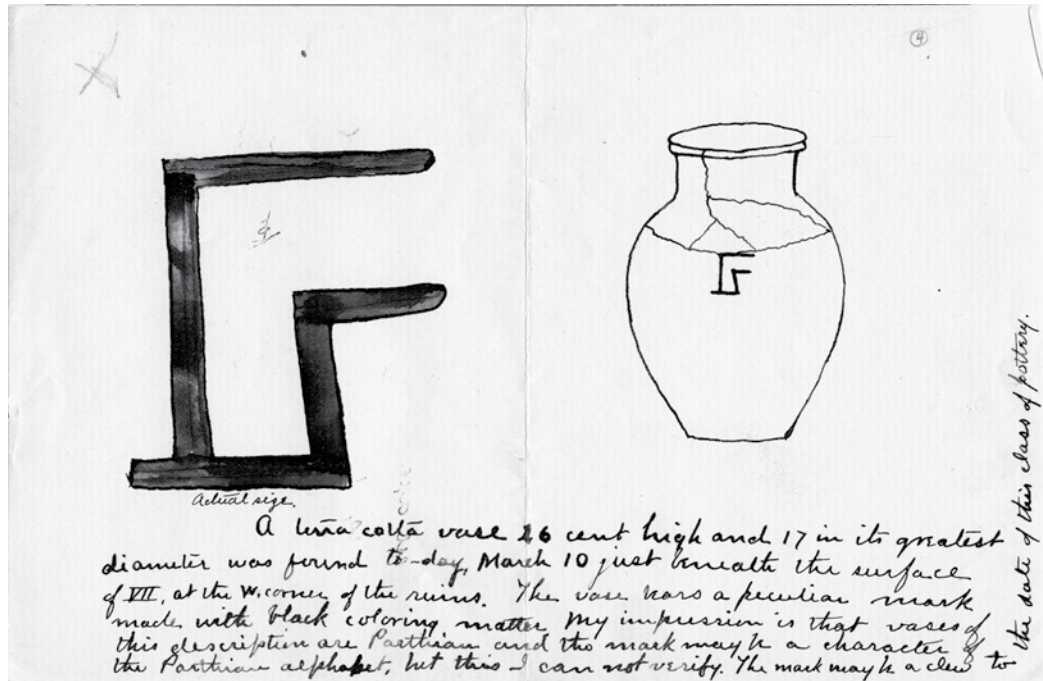 4
Actual size.
A terra cotta vase 26 cent high and 17 in its greatest
diameter was found to-day, March 10 just beneath the surface
of VII, at the W. corner of the ruins. The vase bears a peculiar mark
made with black coloring matter. My impression is that vases of
this description are Parthian and the mark may be a character of
the Parthian alphabet, but this I can not verify. The mark may be a clew to
the date of this class of pottery.